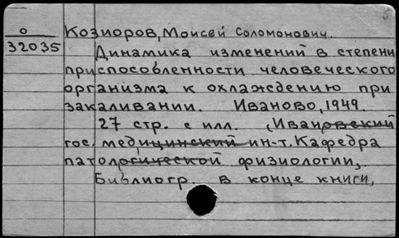 О Козиоров, Моисей Соломонович.
32035
Динамика изменений в степени
приспособленности человеческого
организма к охлаждению при
закаливании. Иваново, 1949.
27 стр. с илл. (Ивановский
гос. медицинский ин-т. Кафедра
патологической физиологии,
Библиогр. в конце книги,